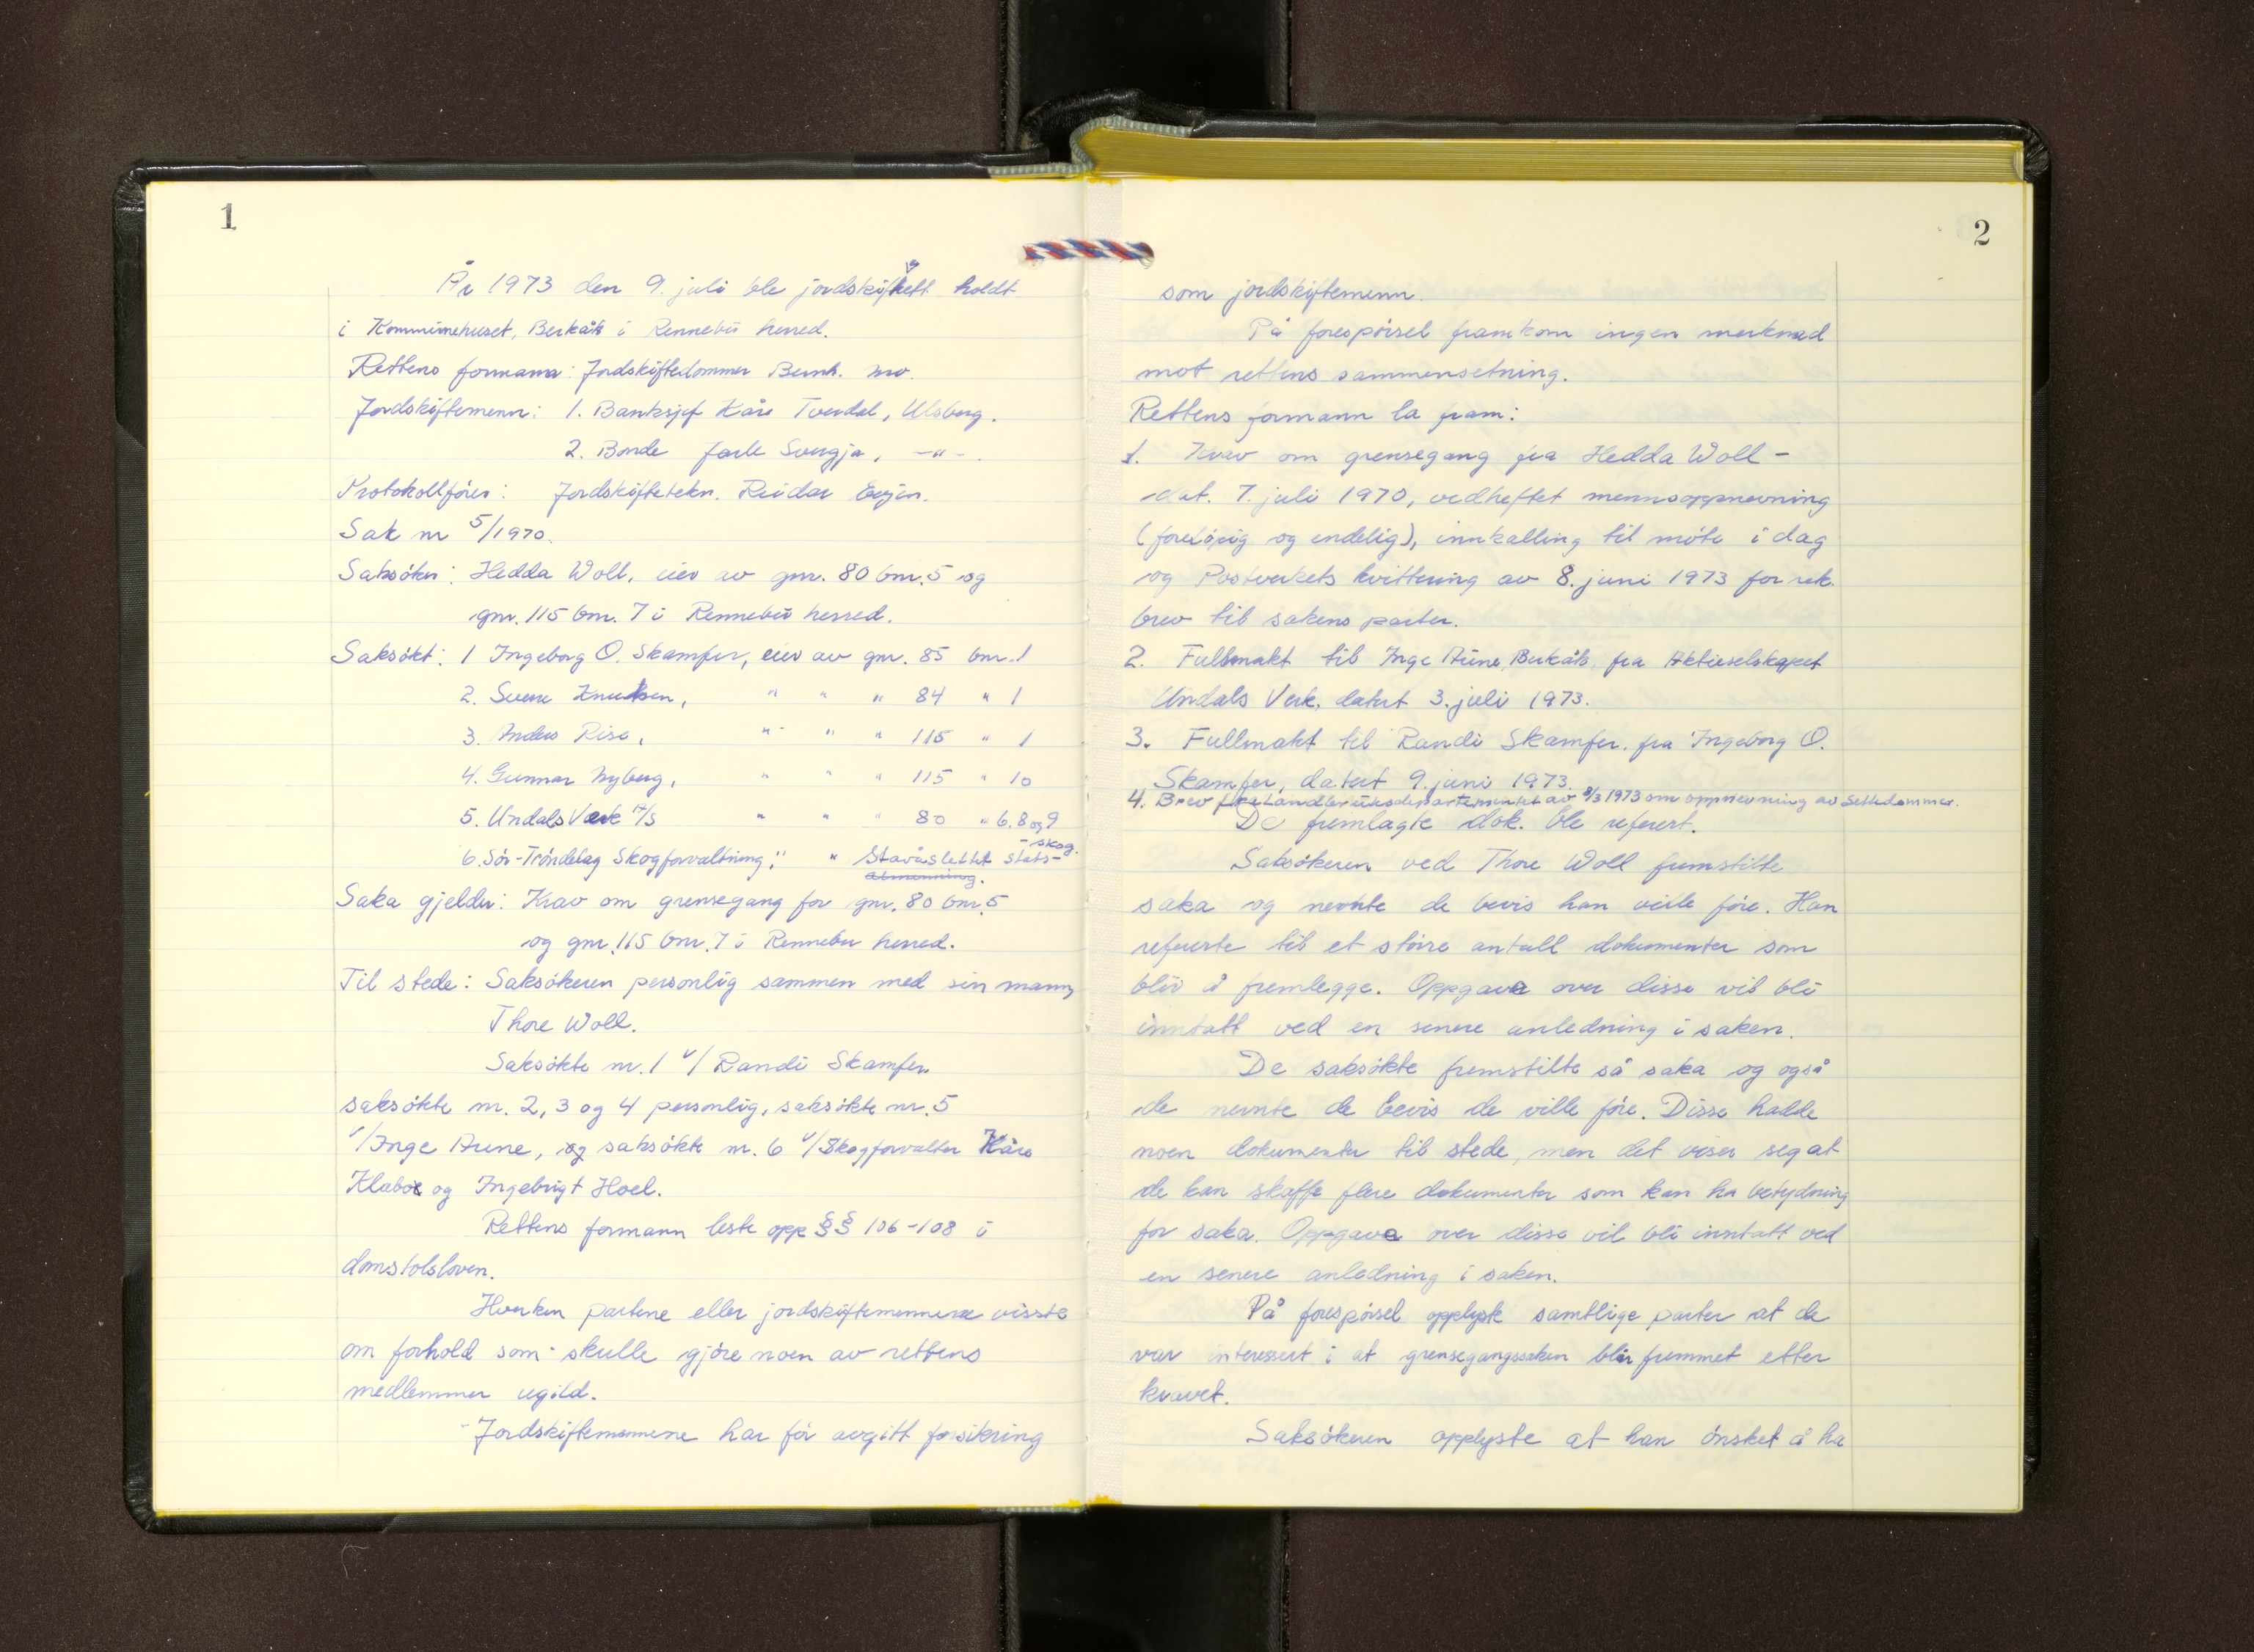 1
År 1973 den 9. juli ble jordskifterett holdt
i Kommunehuset, Berkåk i Rennebu herred.
Rettens formann: Jordskiftedommer Bernh. Mo.
Jordskiftemenn: 1. Banksjef Kåre Tverdal, Ulsberg.
2. Bonde Jarle Svergja, -"-.
Protokollfører: Jordskiftetekn. Reidar
Sak nr 5/1970.
Saksøker: Hedda Woll, eier av gnr. 80 bnr. 5 og
gnr. 115 bnr. 7 i Rennebu herred.
Saksøkt: 1 Ingeborg O. Skamfer, eier av gnr. 85 bnr. 1
2. Sverre Knudsen, " " " 84 " 1
3. Anders Rise, " " " 115 " 1
4. Gunnar Nyberg, " " " 115 " 10
5. Undals Verk A/S " " " 80 " 6, 8 og 9
6. Sør-Trøndelag Skogforvaltning, " " Stavåslettet Stats-
-skog.
almenning.
Saka gjelder: Krav om grensegang for gnr. 80 bnr. 5
og gnr. 115 bnr. 7 i Rennebu herred.
Til stede: Saksøkeren personlig sammen med sin mann,
Thore Woll.
Saksøkte nr. 1 v/ Randi Skamfer,
saksøkte nr. 2, 3 og 4 personlig, saksøkte nr. 5
v/Inge Aune, og saksøkte nr. 6 v/Skogforvalter Kåre
Klæboe og Ingebrigt Hoel.
Rettens formann leste opp §§ 106-108 i
domstolsloven.
Hverken partene eller jordskiftemennene visste
om forhold som skulle gjøre noen av rettens
medlemmer ugild.
Jordskiftemennene har før avgitt forsikring
2
som jordskiftemenn.
På forespørsel framkom ingen merknad
mot rettens sammensetning.
Rettens formann la fram:
1. Krav om grensegang fra Hedda Woll -
dat. 7. juli 1970, vedheftet mennsoppnevning
(foreløpig og endelig), innkalling til møte i dag
og Postverkets kvittering av 8. juni 1973 for rek.
brev til sakens parter.
2. Fullmakt til Inge Aune, Berkåk, fra Aktieselskapet
Undals Verk, datert 3. juli 1973.
3. Fullmakt til Randi Skamfer, fra Ingeborg O.
Skamfer, datert 9. juni 1973.
4. Brev fra Landbruksdepartementet av 8/3 1973 om oppnevning av settedommer.
De fremlagte dok. ble referert.
Saksøkeren ved Thore Woll fremstilte
saka og nevnte de bevis han ville føre. Han
refererte til et større antall dokumenter som
blir å fremlegge. Oppgave over disse vil bli
inntatt ved en senere anledning i saken.
De saksøkte fremstilte så saka og også
de nevnte de bevis de ville føre. Disse hadde
noen dokumenter til stede, men det viser seg at
de kan skaffe flere dokumenter som kan ha betydning
for saka. Oppgave over disse vil bli inntatt ved
en senere anledning i saken.
På forespørsel opplyste samtlige parter at de
var interessert i at grensegangssaken blir fremmet etter
kravet.
Saksøkeren opplyste at han ønsket å ha